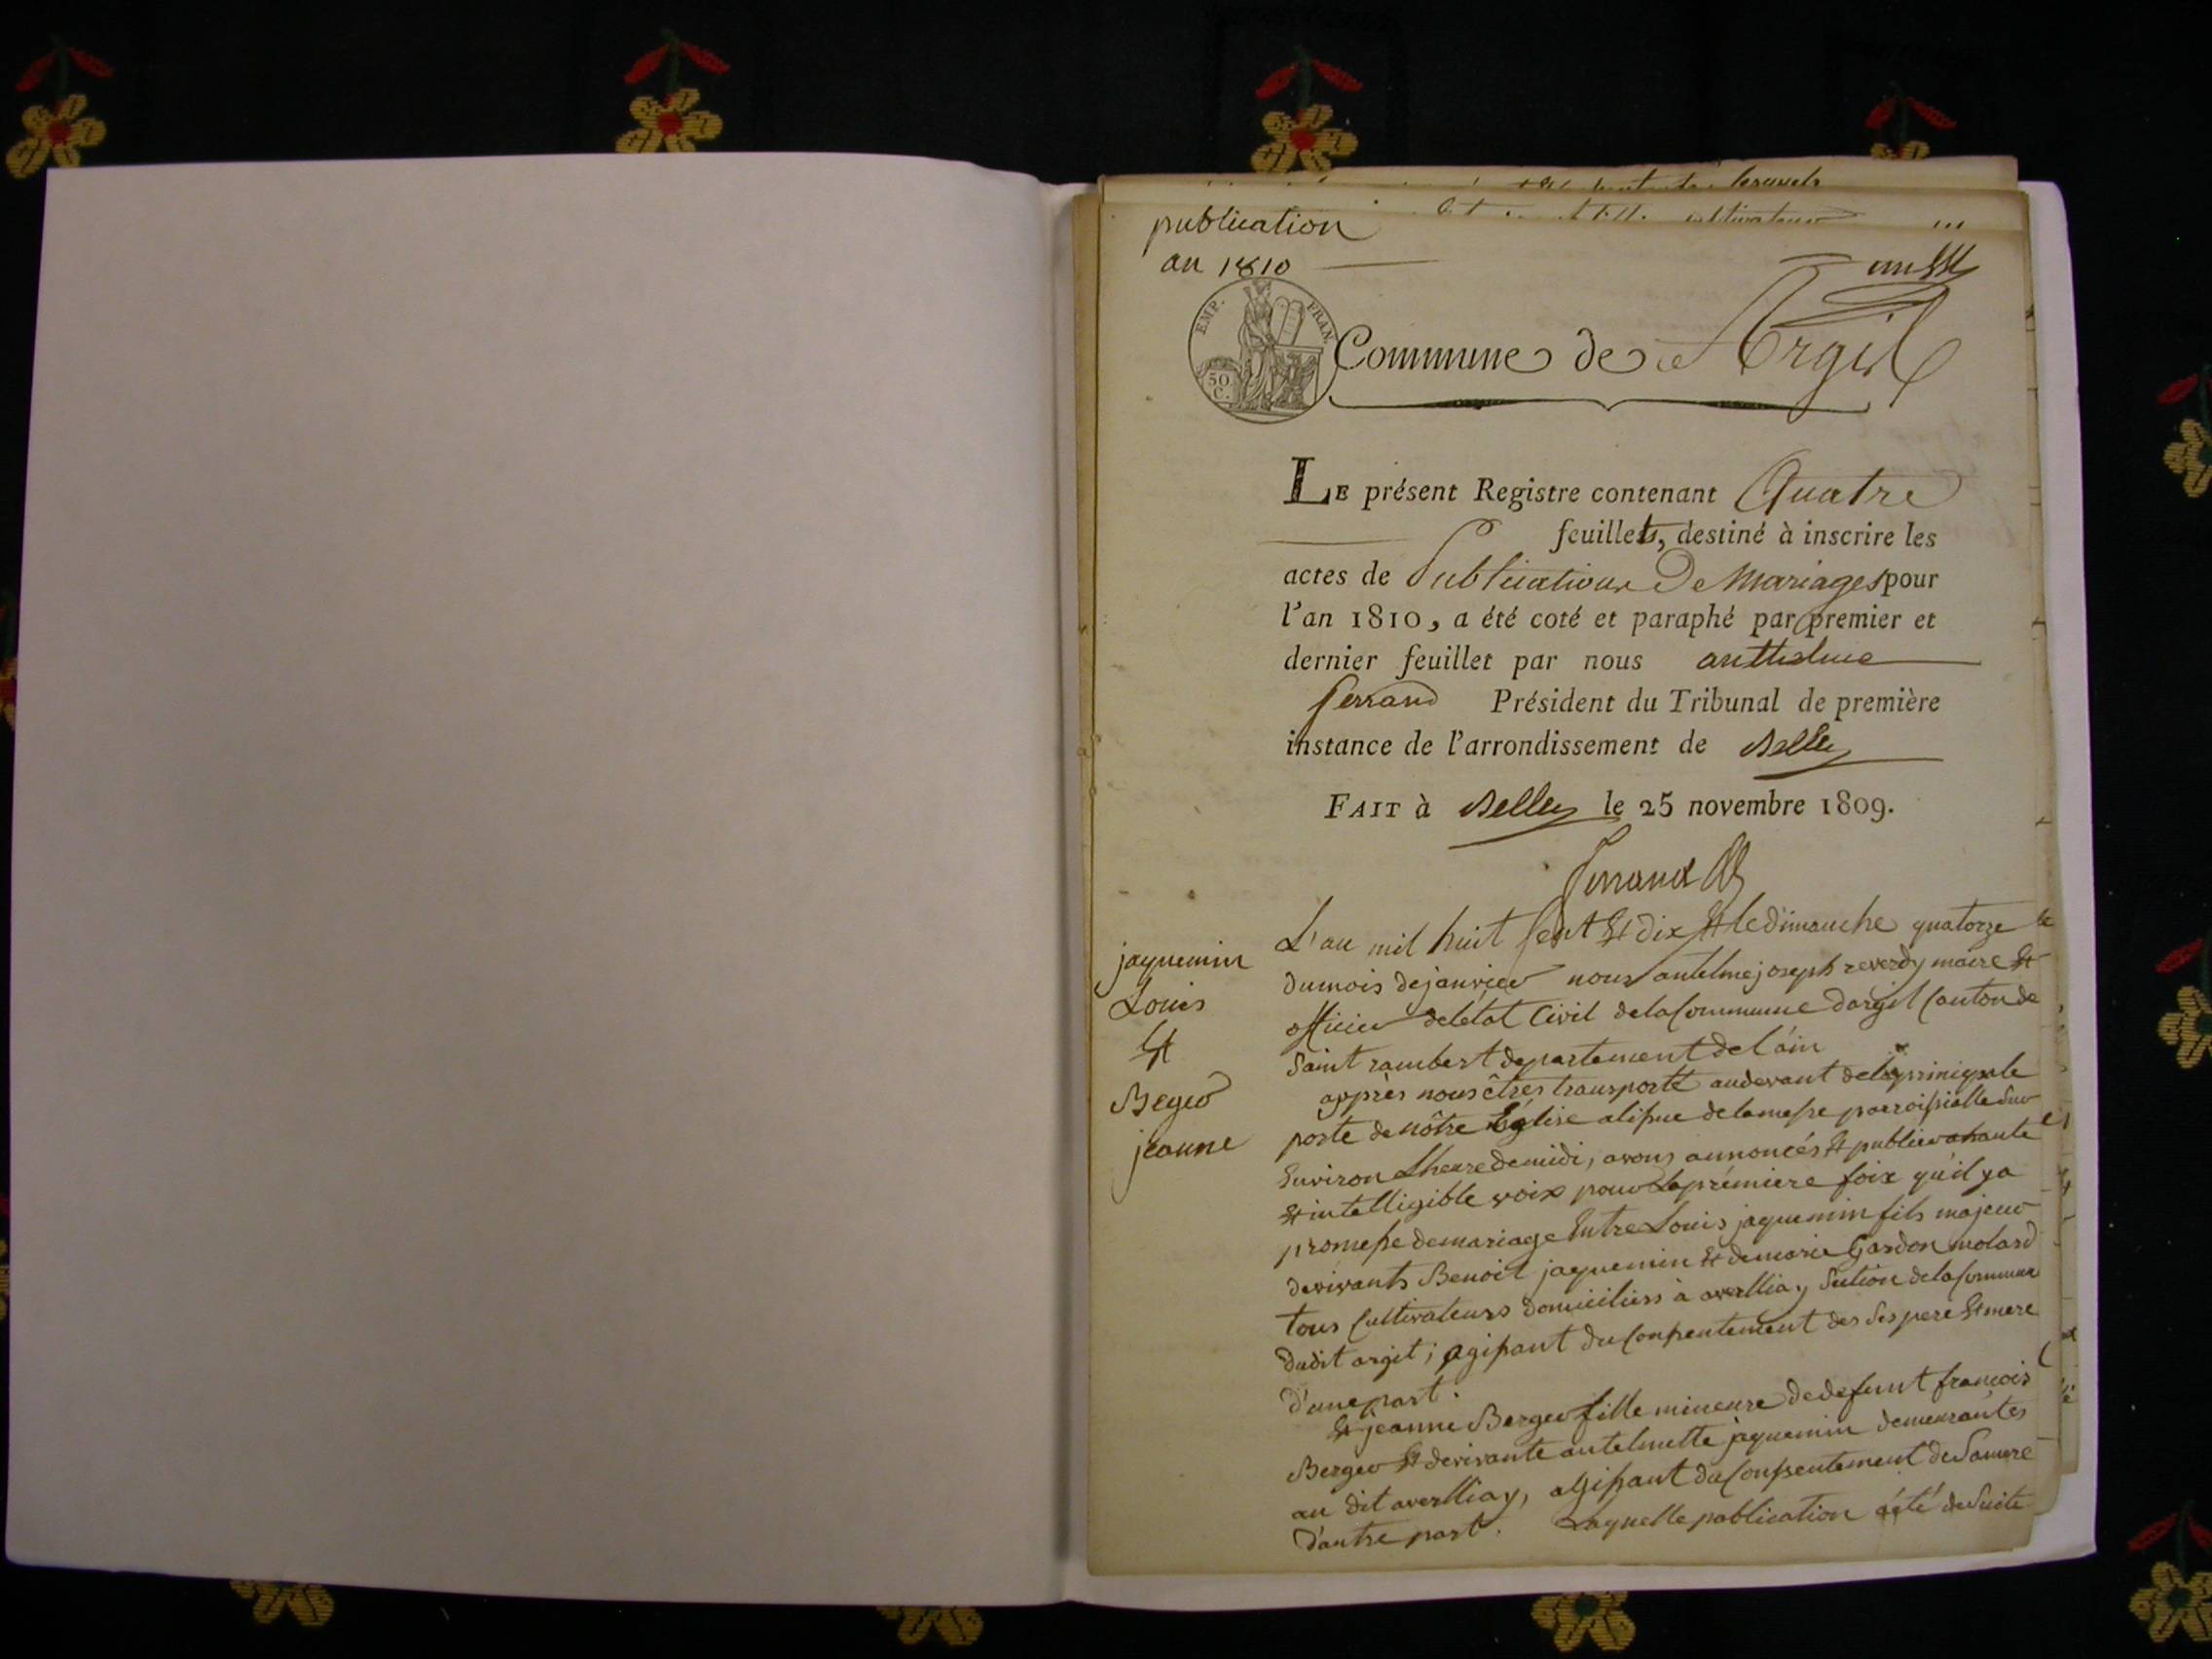 publication
an 1810
EMP. FRAN.
50 C.
Commune de Argil
LE présent Registre contenant Quatre
feuillets, destiné à inscrire les
actes de Publications De Mariages pour
l'an 1810, a été coté et paraphé par premier et
dernier feuillet par nous anthelme
ferrand Président du Tribunal de première
instance de l'arrondissement de Belley
FAIT à Belley le 25 novembre 1809.
ferrand
jaquemin
Louis
Et
Berger
jeanne
L'an mil huit Cent Et dix Et le dimanche quatorze
du mois de janvier nous antelme joseph reverdy maire Et
officier de létat Civil de la Commune dargil Canton de
Saint rambert departement de l'ain
apprès nous êtres transporté audevant de la prinipale
porte de nôtre Eglise a lissue de la messe parroissialle Sur
Environ Lheure de midi, avons annoncés Et publier a haute
Et intelligible voix pour La prémiere foix qu'il y a
promesse de mariage Entre Louis jaquemin fils majeur
de vivants Benoit jaquemin Et de marie Gardon molard
tous Cultivateurs domiciliés à averlliay Section de la Commune
dudit argit; agissant du Consentement des Ses pere Et mere
d'une part.
Et jeanne Berger fille mineure de defunt francois
Berger Et de vivante antelmette jaquemin demeurantes
au dit averlliay, agissant du Consentement de Sa mere
d'autre part. Laquelle publication a été de Suite